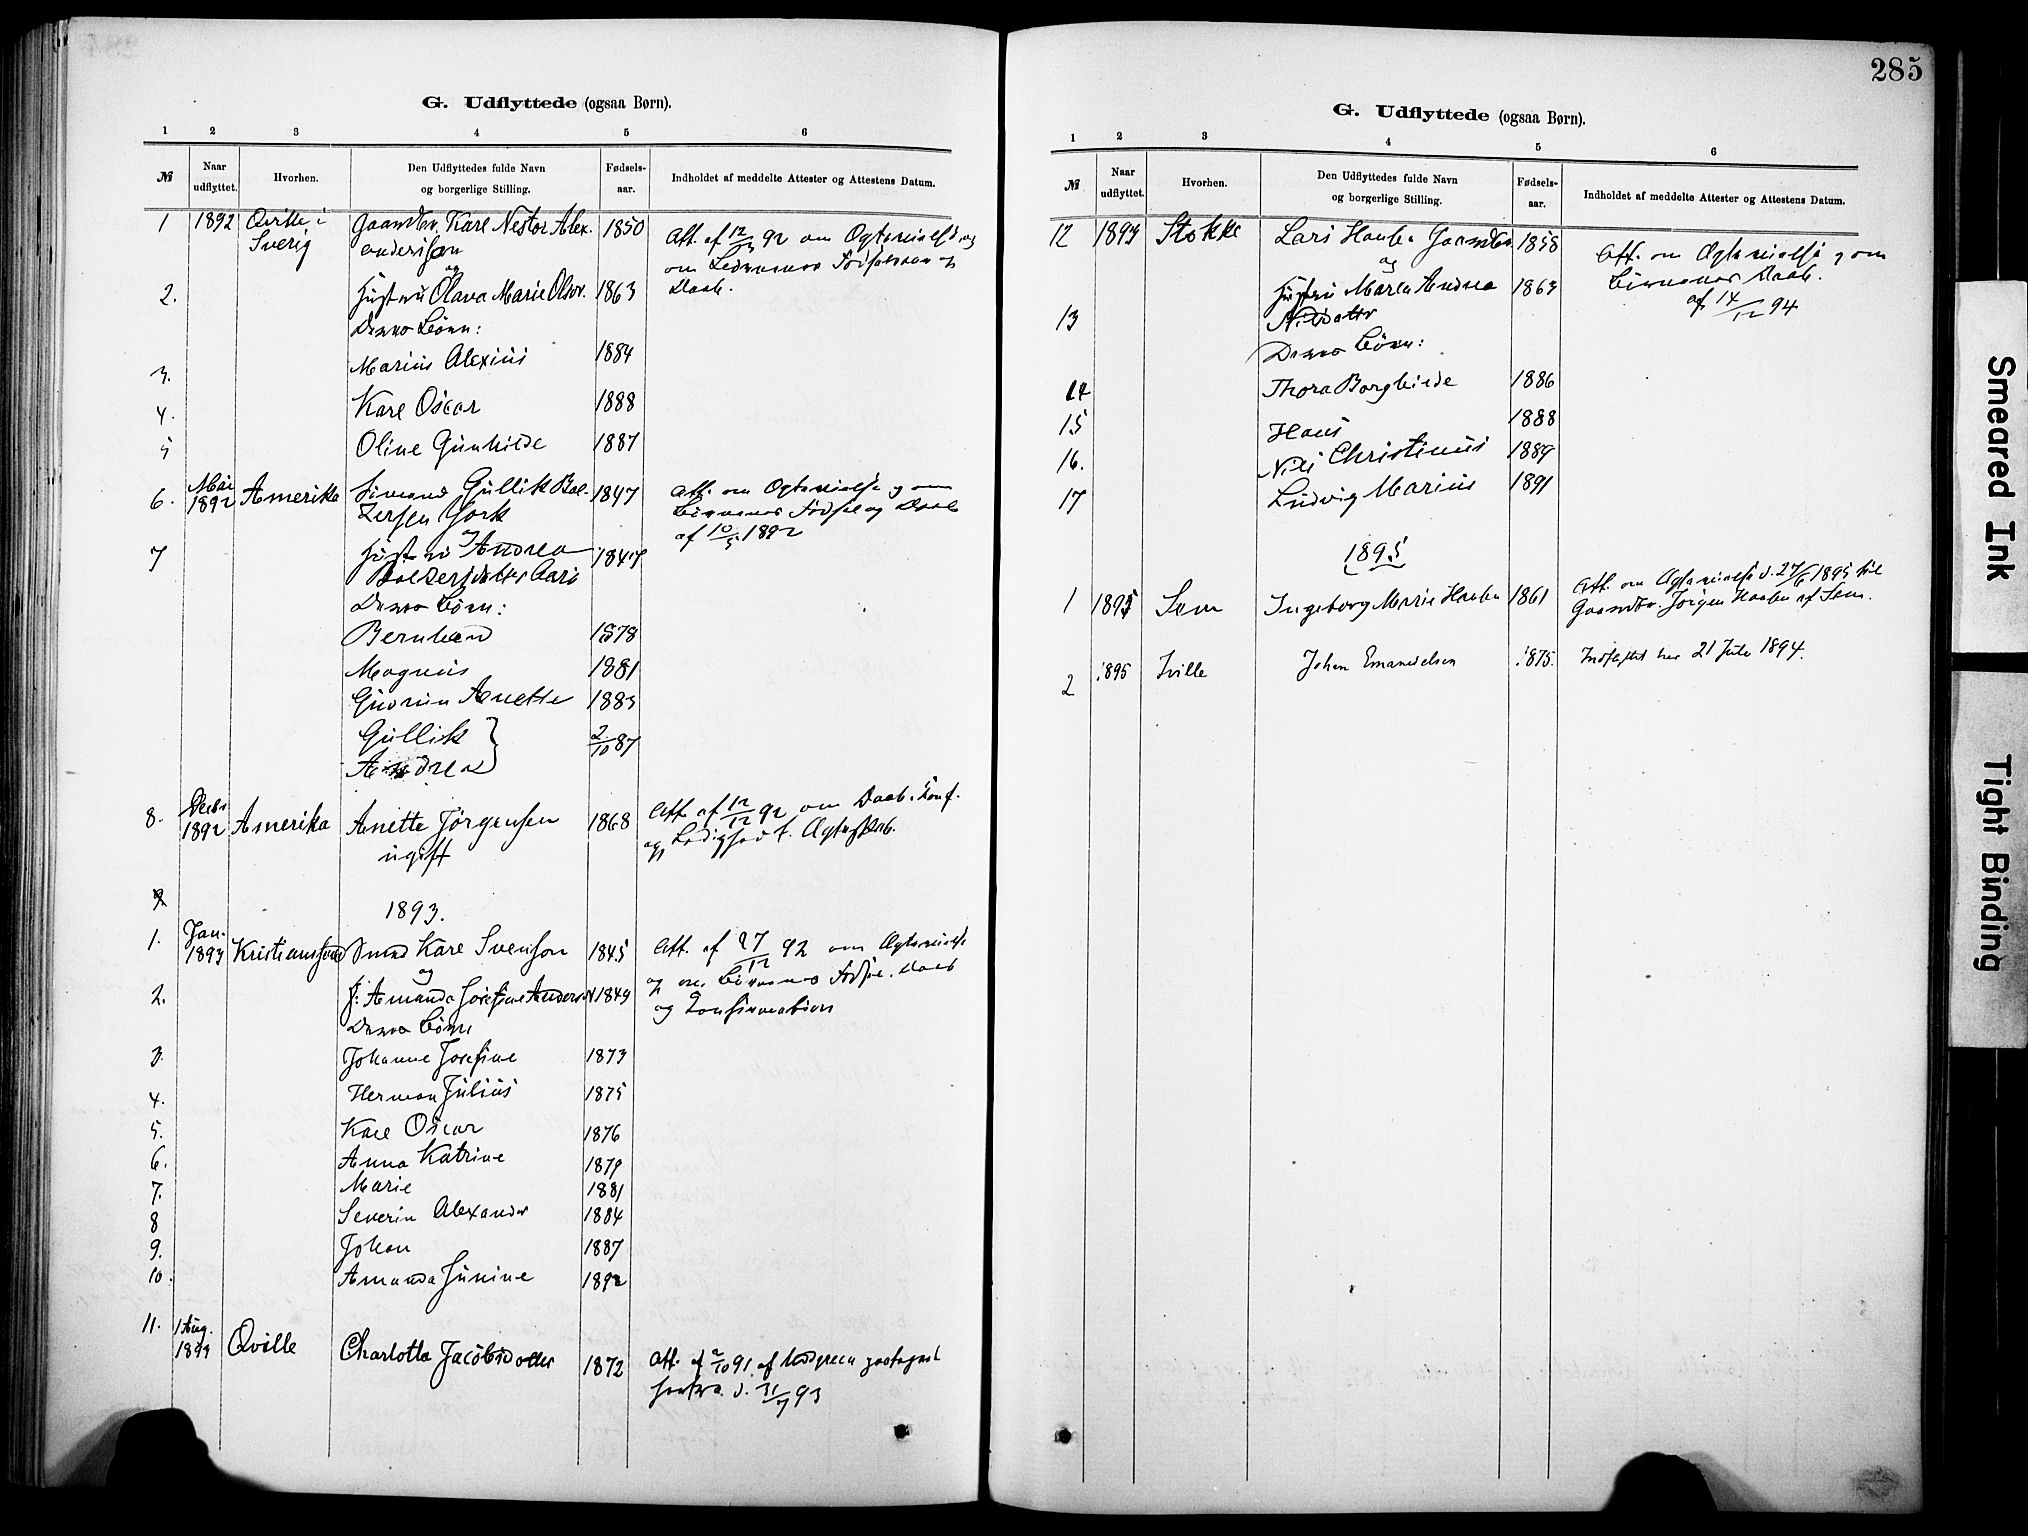 G. Udflyttede (ogsaa Børn).
1 2 3 4 5 6
№ Naar udflyttet. Hvorhen. Den Udflyttedes fulde Navn og borgerlige Stilling. Fødsels-aar. Indholdet af meddelte Attester og Attestens Datum.
1 1892 Qville i Gaardbr. Karl Nestor Alex- 1850 Att. af 12/3 92 om Ægtevielse og
Sverig andersson om Børnenes Fødselsaar og
og Daab.
2. Hustru Olava Marie Olsdr. 1863
Deres Børn:
3. Marius Alexius 1884
4. Karl Oscar 1888
5 Oline Gunhilde 1887
6. Mai 1892 Amerika Sømand Gullik Bal- 1847 Att. om Ægtevielse og om
zersen York Børnenes Fødsel og Daab
og af 10/5 1892
7 Hustru Andrea 1847
Balzersdatter
Deres Børn:
Bernhard 1878
Magnus 1881
Gudrun Anette 1883
Gullik 2/10 87
Andrea
8. Decbr 1892 Amerika Anette Jörgensen 1868 Att. af 12/12 92 om Daab, Konf.
ugift og Ledighed f. Ægteskab.
9
1893.
1. Jan. 1893 Kristianssund Smed Karl Svenson 1845 Att. af 27/12 92 om Ægtevielse
og og om Børnenes Fødsel, Daab
2. H: Amanda Josefine Andersd 1849 og Konfirmation
Deres Børn
3. Johanne Josefine 1873
4. Herman Julius 1875
5. Karl Oscar 1876
6. Anna Katrine 1879
7. Marie 1881
8 Severin Alexander 1884
9. Johan 1887
10. Amanda Junine 1892
11. 1 Aug. Qville Charlotta Jacobsdotter 1872 Att. af 2/10 91 af
d. 31/7 93
285
G. Udflyttede (ogsaa Børn).
1 2 3 4 5 6
№ Naar udflyttet. Hvorhen. Den Udflyttedes fulde Navn og borgerlige Stilling. Fødsels-aar. Indholdet af meddelte Attester og Attestens Datum.
12 Stokke Lars Gaardbr 1858 Att. om Ægtevielse og om
og Børnenes Daab.
13 Hustru Maren Andrea 1863 af 14/12 94
Nilsdatter
Deres Børn:
14 Thora Borghilde 1886
15 Hans 1888
16. Nils Christinus 1889
17 Ludvig Marius 1891
1895
1 1895 Sem Ingeborg Marie 1861 Att. om Ægtevielse d. 27/6 1895 til
Gaardbr. Jørgen af Sem.
2 1895 Johan Emanuelsen 1875. Indflyttet her 21 Juli 1894.
Smeared Ink
Tight Binding